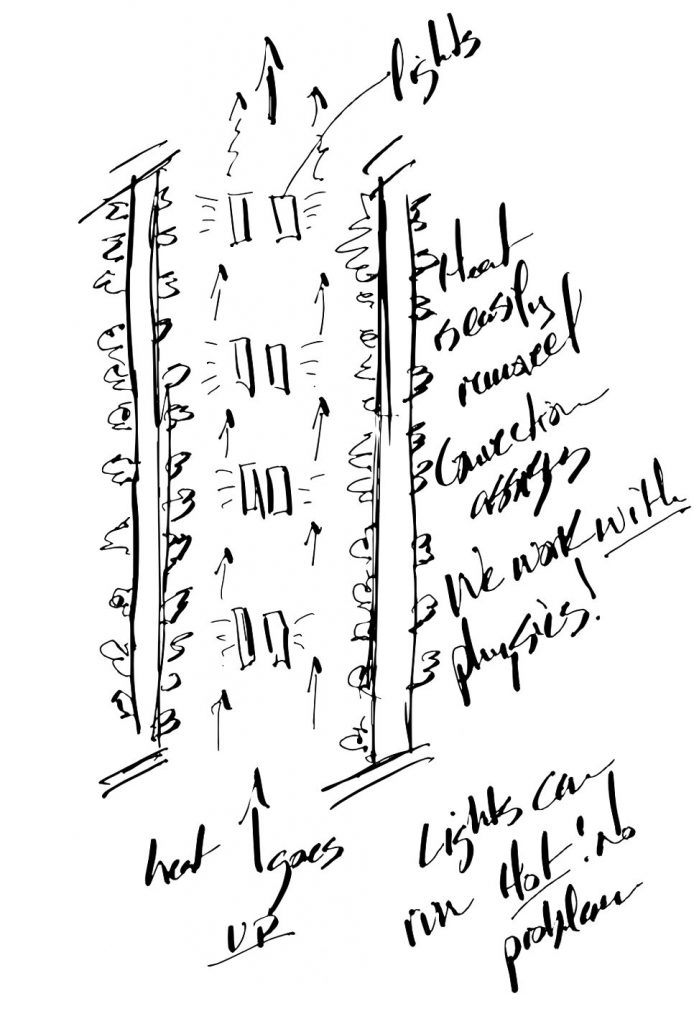 lights
Heat
is easily
removed
Convection
assists
We work with
physics!
heat goes
UP
Lights can
run Hot! No
problem